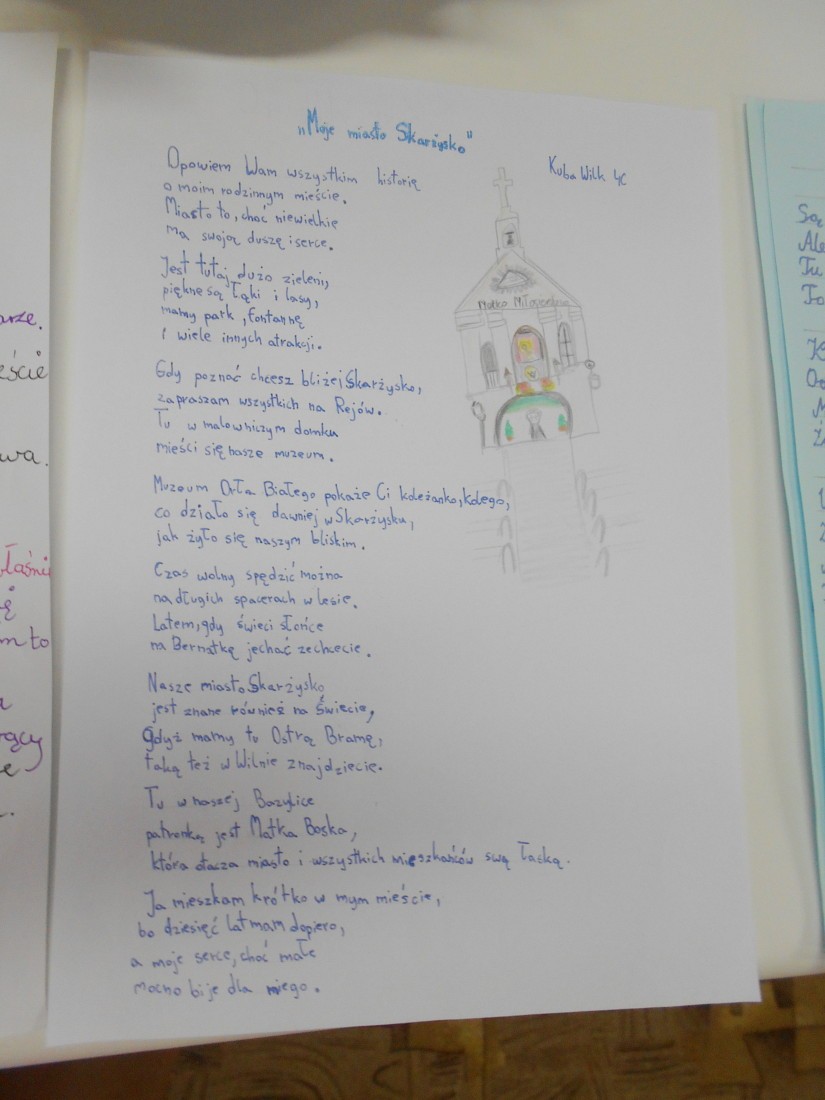 „Moje miasto Skarżysko"
Kuba Wilk 4C
Opowiem Wam wszystkim historię
o moim rodzinnym mieście.
Miasto to, choć niewielkie
ma swoją duszę i serce.
Jest tutaj dużo zieleni,
piękne są łąki i lasy,
mamy park, fontannę
i wiele innych atrakcji.
Gdy poznać chcesz bliżej Skarżysko,
zapraszam wszystkich na Rejów.
Tu w malowniczym domku
mieści się nasze muzeum.
Muzeum Orła Białego pokaże Ci koleżanko, kolego,
co działo się dawniej w Skarżysku,
jak żyło się naszym bliskim.
Czas wolny spędzić można
na długich spacerach w lesie.
Latem, gdy świeci słońce
na Bernatkę jechać zechcecie.
Nasze miasto Skarżysko
jest znane również na świecie,
gdyż mamy tu Ostrą Bramę,
taką też w Wilnie znajdziecie.
Tu w naszej Bazylice
patronką jest Matka Boska,
która otacza miasto i wszystkich mieszkańców swą łaską.
Ja mieszkam krótko w mym mieście,
bo dziesięć lat mam dopiero,
a moje serce, choć małe
mocno bije dla niego.
Matko Miłosierdzia
arze.
eście
wa.
właśni
ę
m to
a
rący
e
Są
Ale
Tu
To